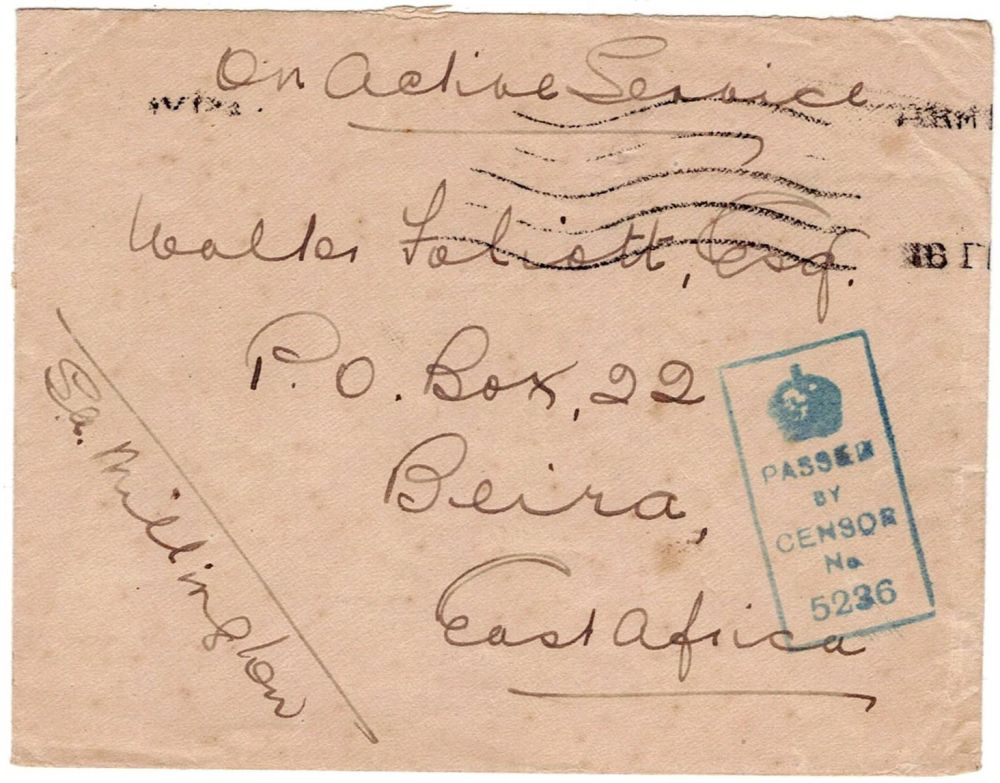 On Active Service
Walter Foliott, Esq.
P.O. Box, 22
Beira,
East Africa
S.a. Millington
PASSED
BY
CENSOR
No
5236